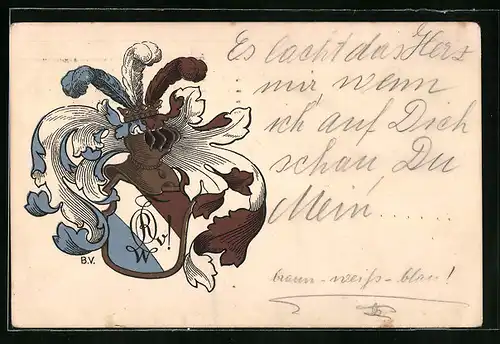 Es lacht das Herz
mir wenn
ich auf Dich
schau, Du
Mein.......
braun-weiß-blau!
R
W v!
B.V.